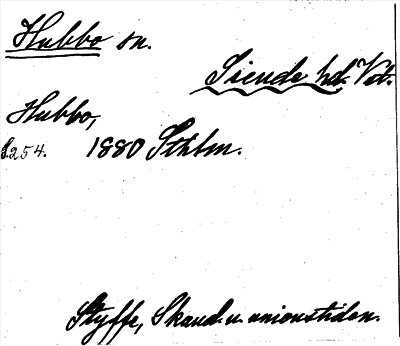 Hubbo sn.
Siende hd. Vst.
Hubbo,
s. 254. 1880 Sthlm.
Styffe, Skand. u. unionstiden.